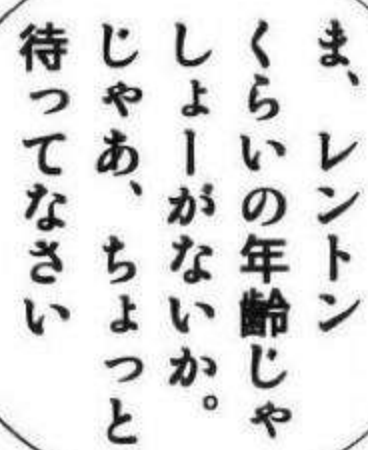 ま、レントン
くらいの年齢じゃ
しょーがないか。
じゃあ、ちょっと
待ってなさい